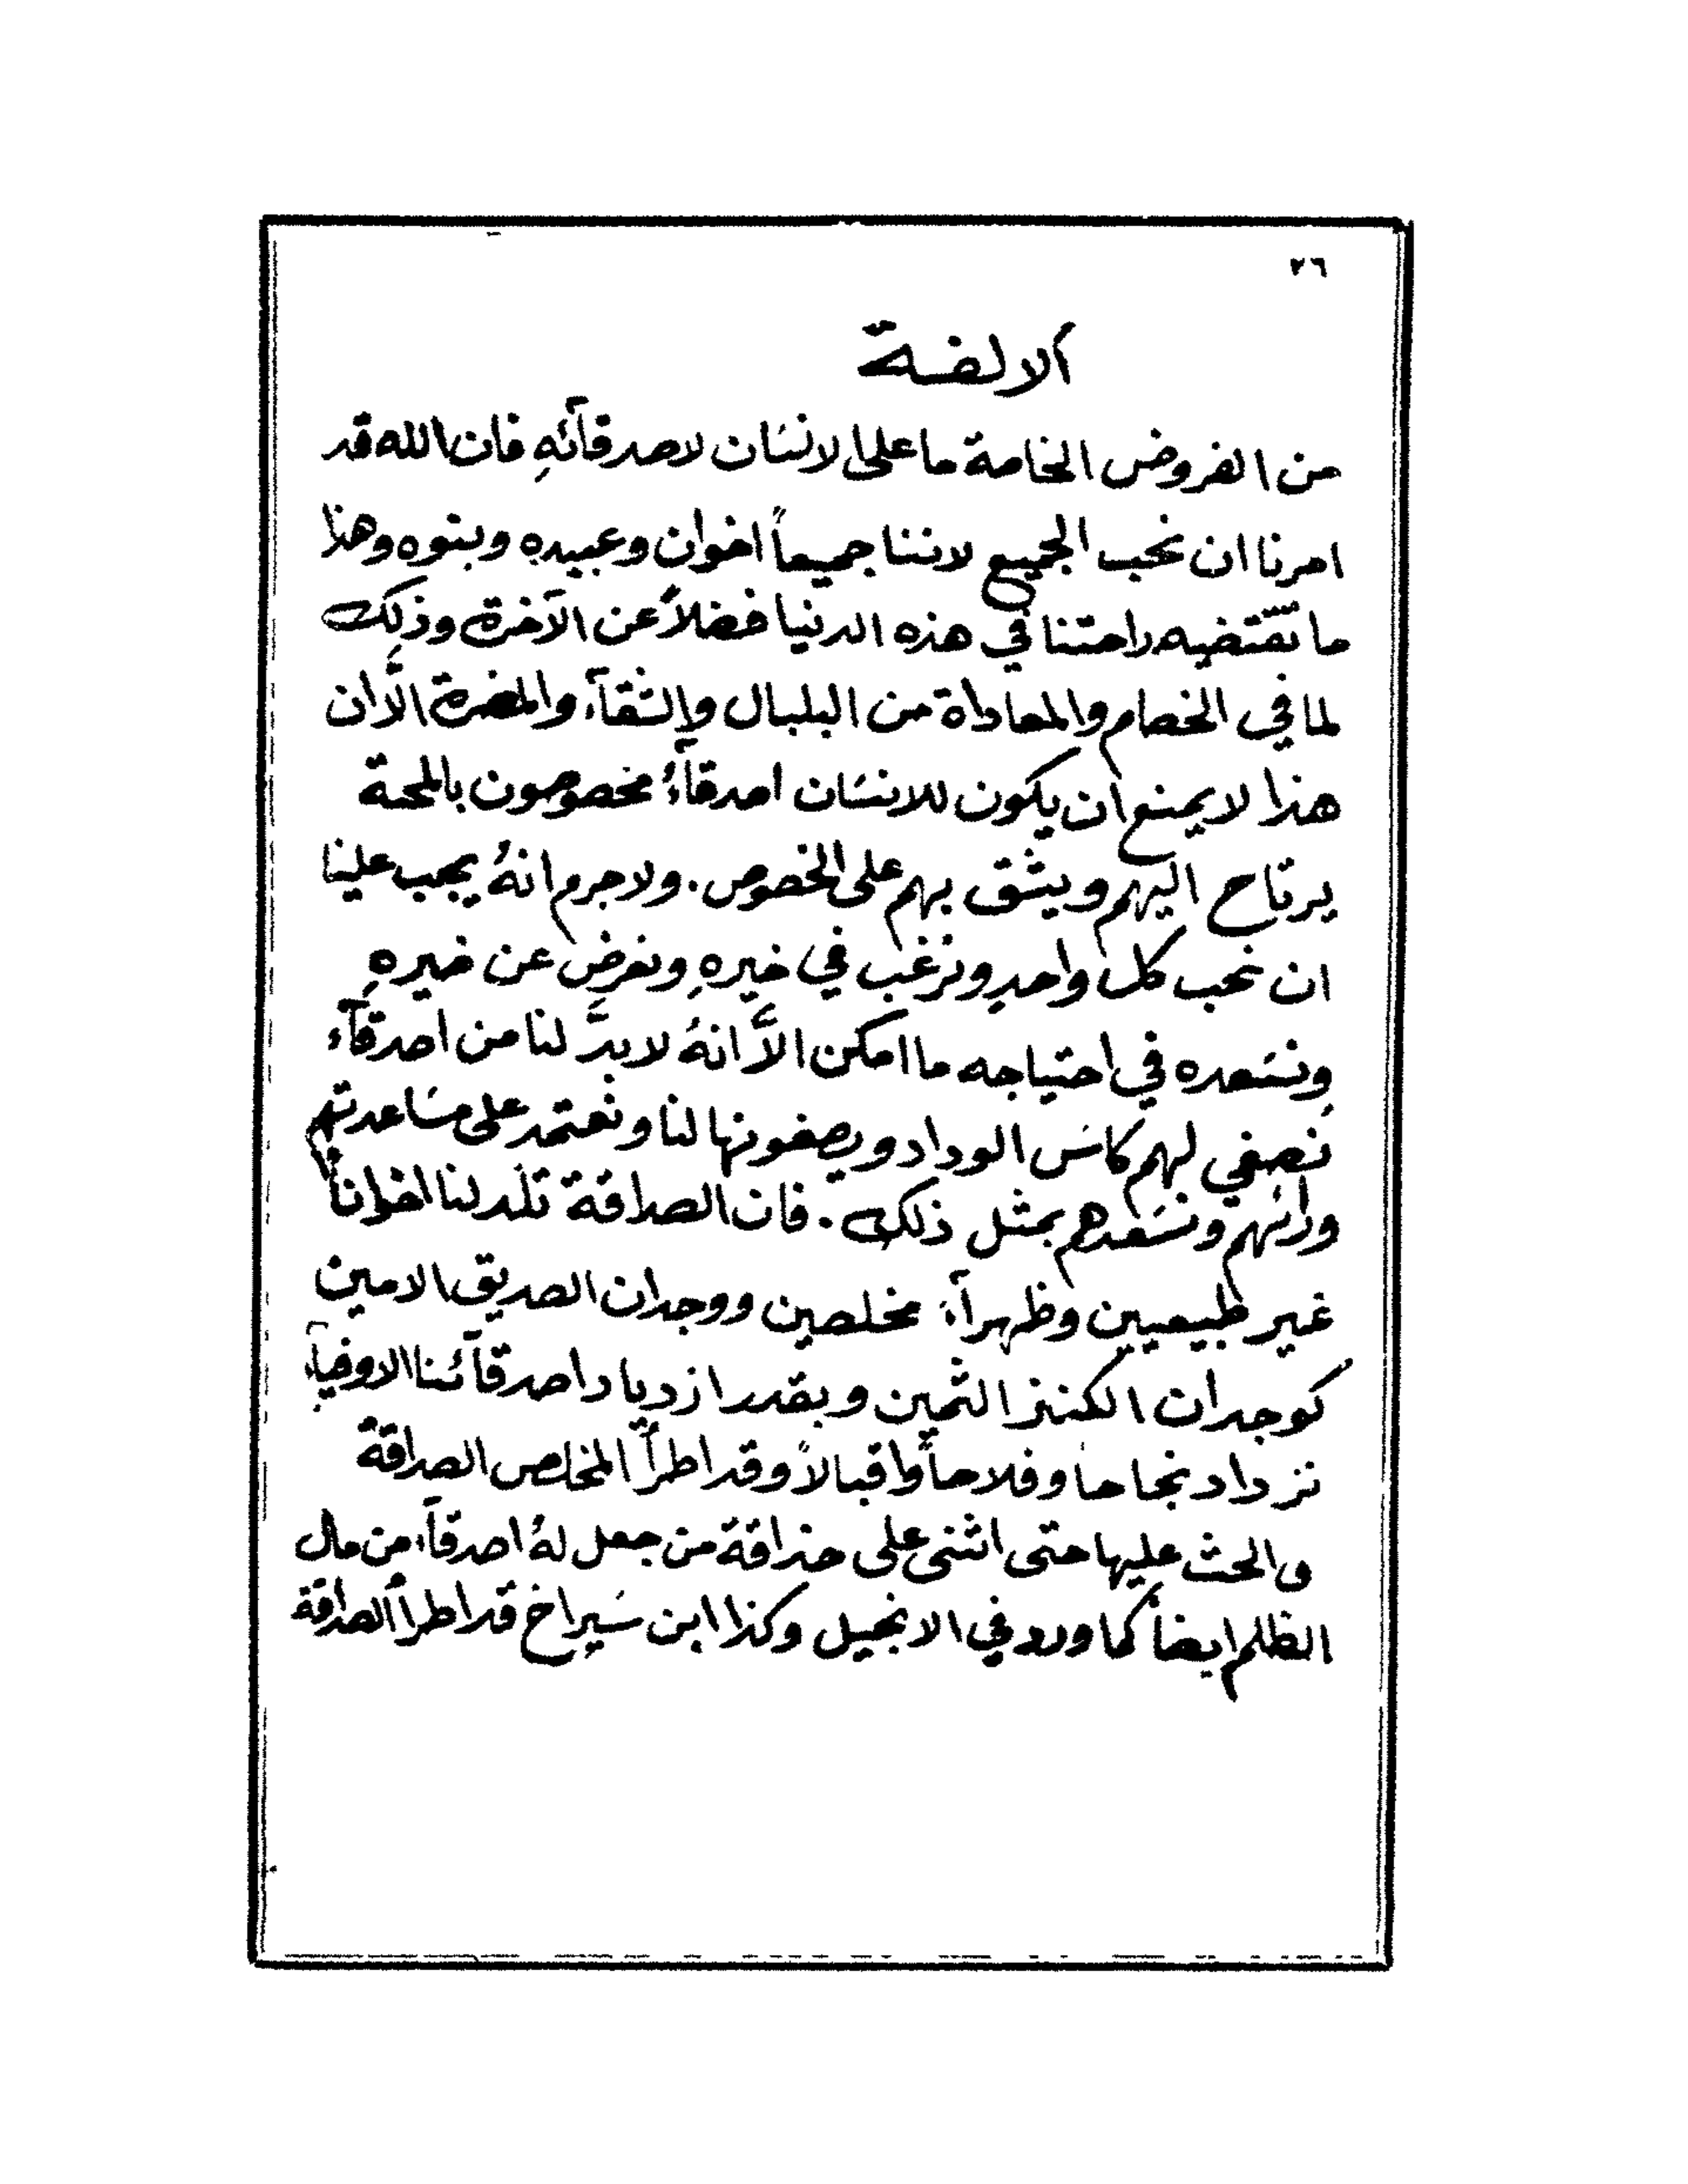 ٢٦
الالفة
من الفروض الخاصة ما على الانسان لاصدقآئهِ فان الله قد
امرنا ان نحب الجميع لاننا جميعاً اخوان وعبيده وبنوه وهذا
ما تقتضيه راحتنا في هذه الدنيا فضلاً عن الآخرة وذلك
لما في الخصام والمعاداة من البلبال والشقآء والمضرة الَّا ان
هذا لا يمنع ان يكون للانسان اصدقآءُ مخصوصون بالمحبة
يرتاح اليهم ويثق بهم على الخصوص. ولا جرم انهُ يجب علينا
ان نحب كل واحدٍ ونرغب في خيرهِ ونعرض عن ضيرهِ
ونسعده في احتياجه ما امكن الاَّ انهُ لا بدَّ لنا من اصدقآء
نصفي لهم كاس الوداد ويصفونها لنا ونعتمد على مساعدتهم
ورائهم ونسعدهم بمثل ذلك. فان الصداقة تلد لنا اخواناً
غير طبيعيين وظهرآءَ مخلصين ووجدان الصديق الامين
كوجدان الكنز الثمين وبقدر ازدياد اصدقآئنا الاوفيآء
نزداد نجاحا وفلاحاً واقبالاً وقد اطرأ المخلص الصداقة
والحث عليها حتى اثنى على حذاقة من جعل لهُ اصدقآء من مال
الظلم ايضاً كما ورد في الانجيل وكذا ابن سيراخ قد اطرأ الصداقة